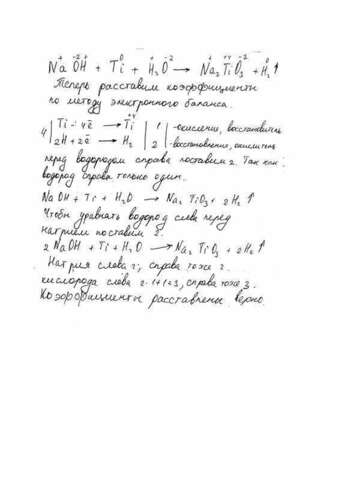 Na⁺ O⁻²H⁺ + Ti⁰ + H₂⁺O⁻² → Na₂⁺Ti⁺⁴O₃⁻² + H₂⁰↑
Теперь расставим коэффициенты
по методу электронного баланса.
4 | Ti - 4ē → Ti⁺⁴ | 1 | -окисление, восстановитель
2H + 2ē → H₂ | 2 | -восстановление, окислитель
перед водородом справа поставим 2. Так как
водород справа только один.
NaOH + Ti + H₂O → Na₂TiO₃ + 2H₂↑
Чтобы уравнять водород слева перед
натрием поставим 2.
2NaOH + Ti + H₂O → Na₂TiO₃ + 2H₂↑
Натрия слева 2, справа тоже 2.
кислорода слева 2·1+1=3, справа тоже 3.
Коэффициенты расставлены верно